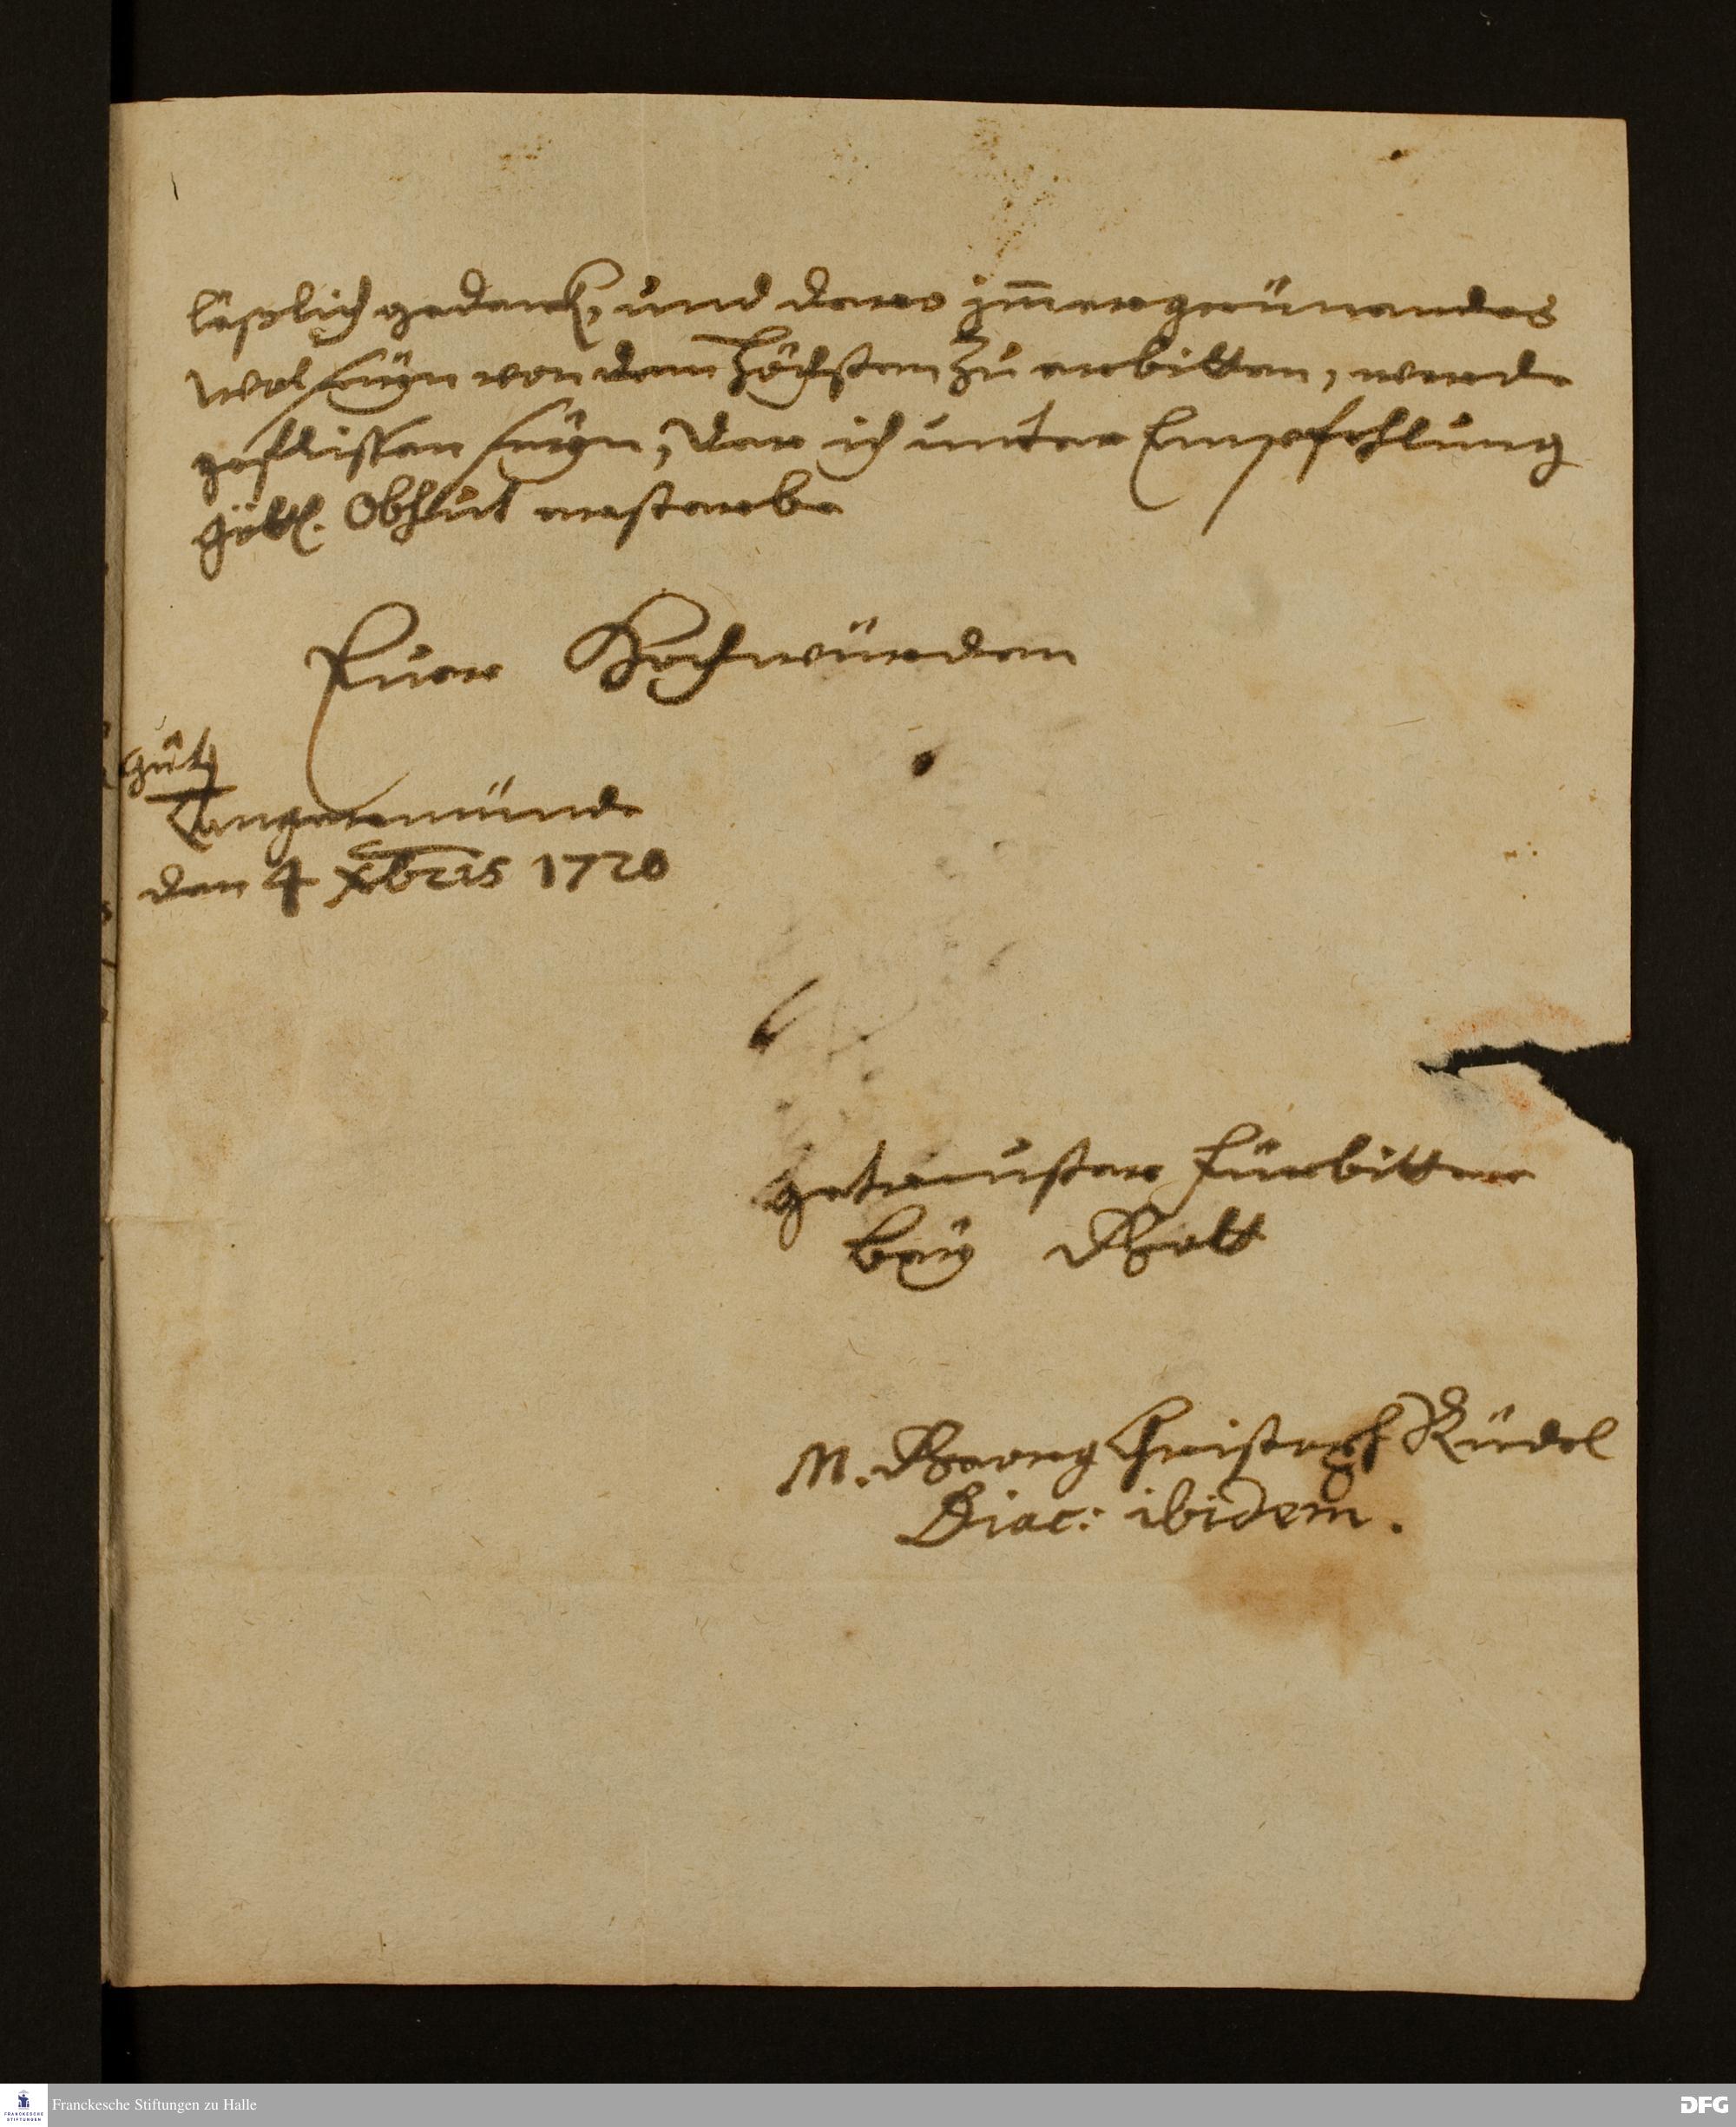 läßlich gedenck, und dero im̄ergrünendes
Wolseÿn von dem Höchsten zu erbitten, werde
geflissen seÿn, der ich unter Empfehlung
göttl. Obhut ersterbe
Euer Hochwürden
Tangermünde
den 4 Xbris 1720
getreuster Fürbitter
beÿ Gott
M. Georg Christoph Rüdel
Diac: ibidem.
Franckesche Stiftungen zu Halle
DFG